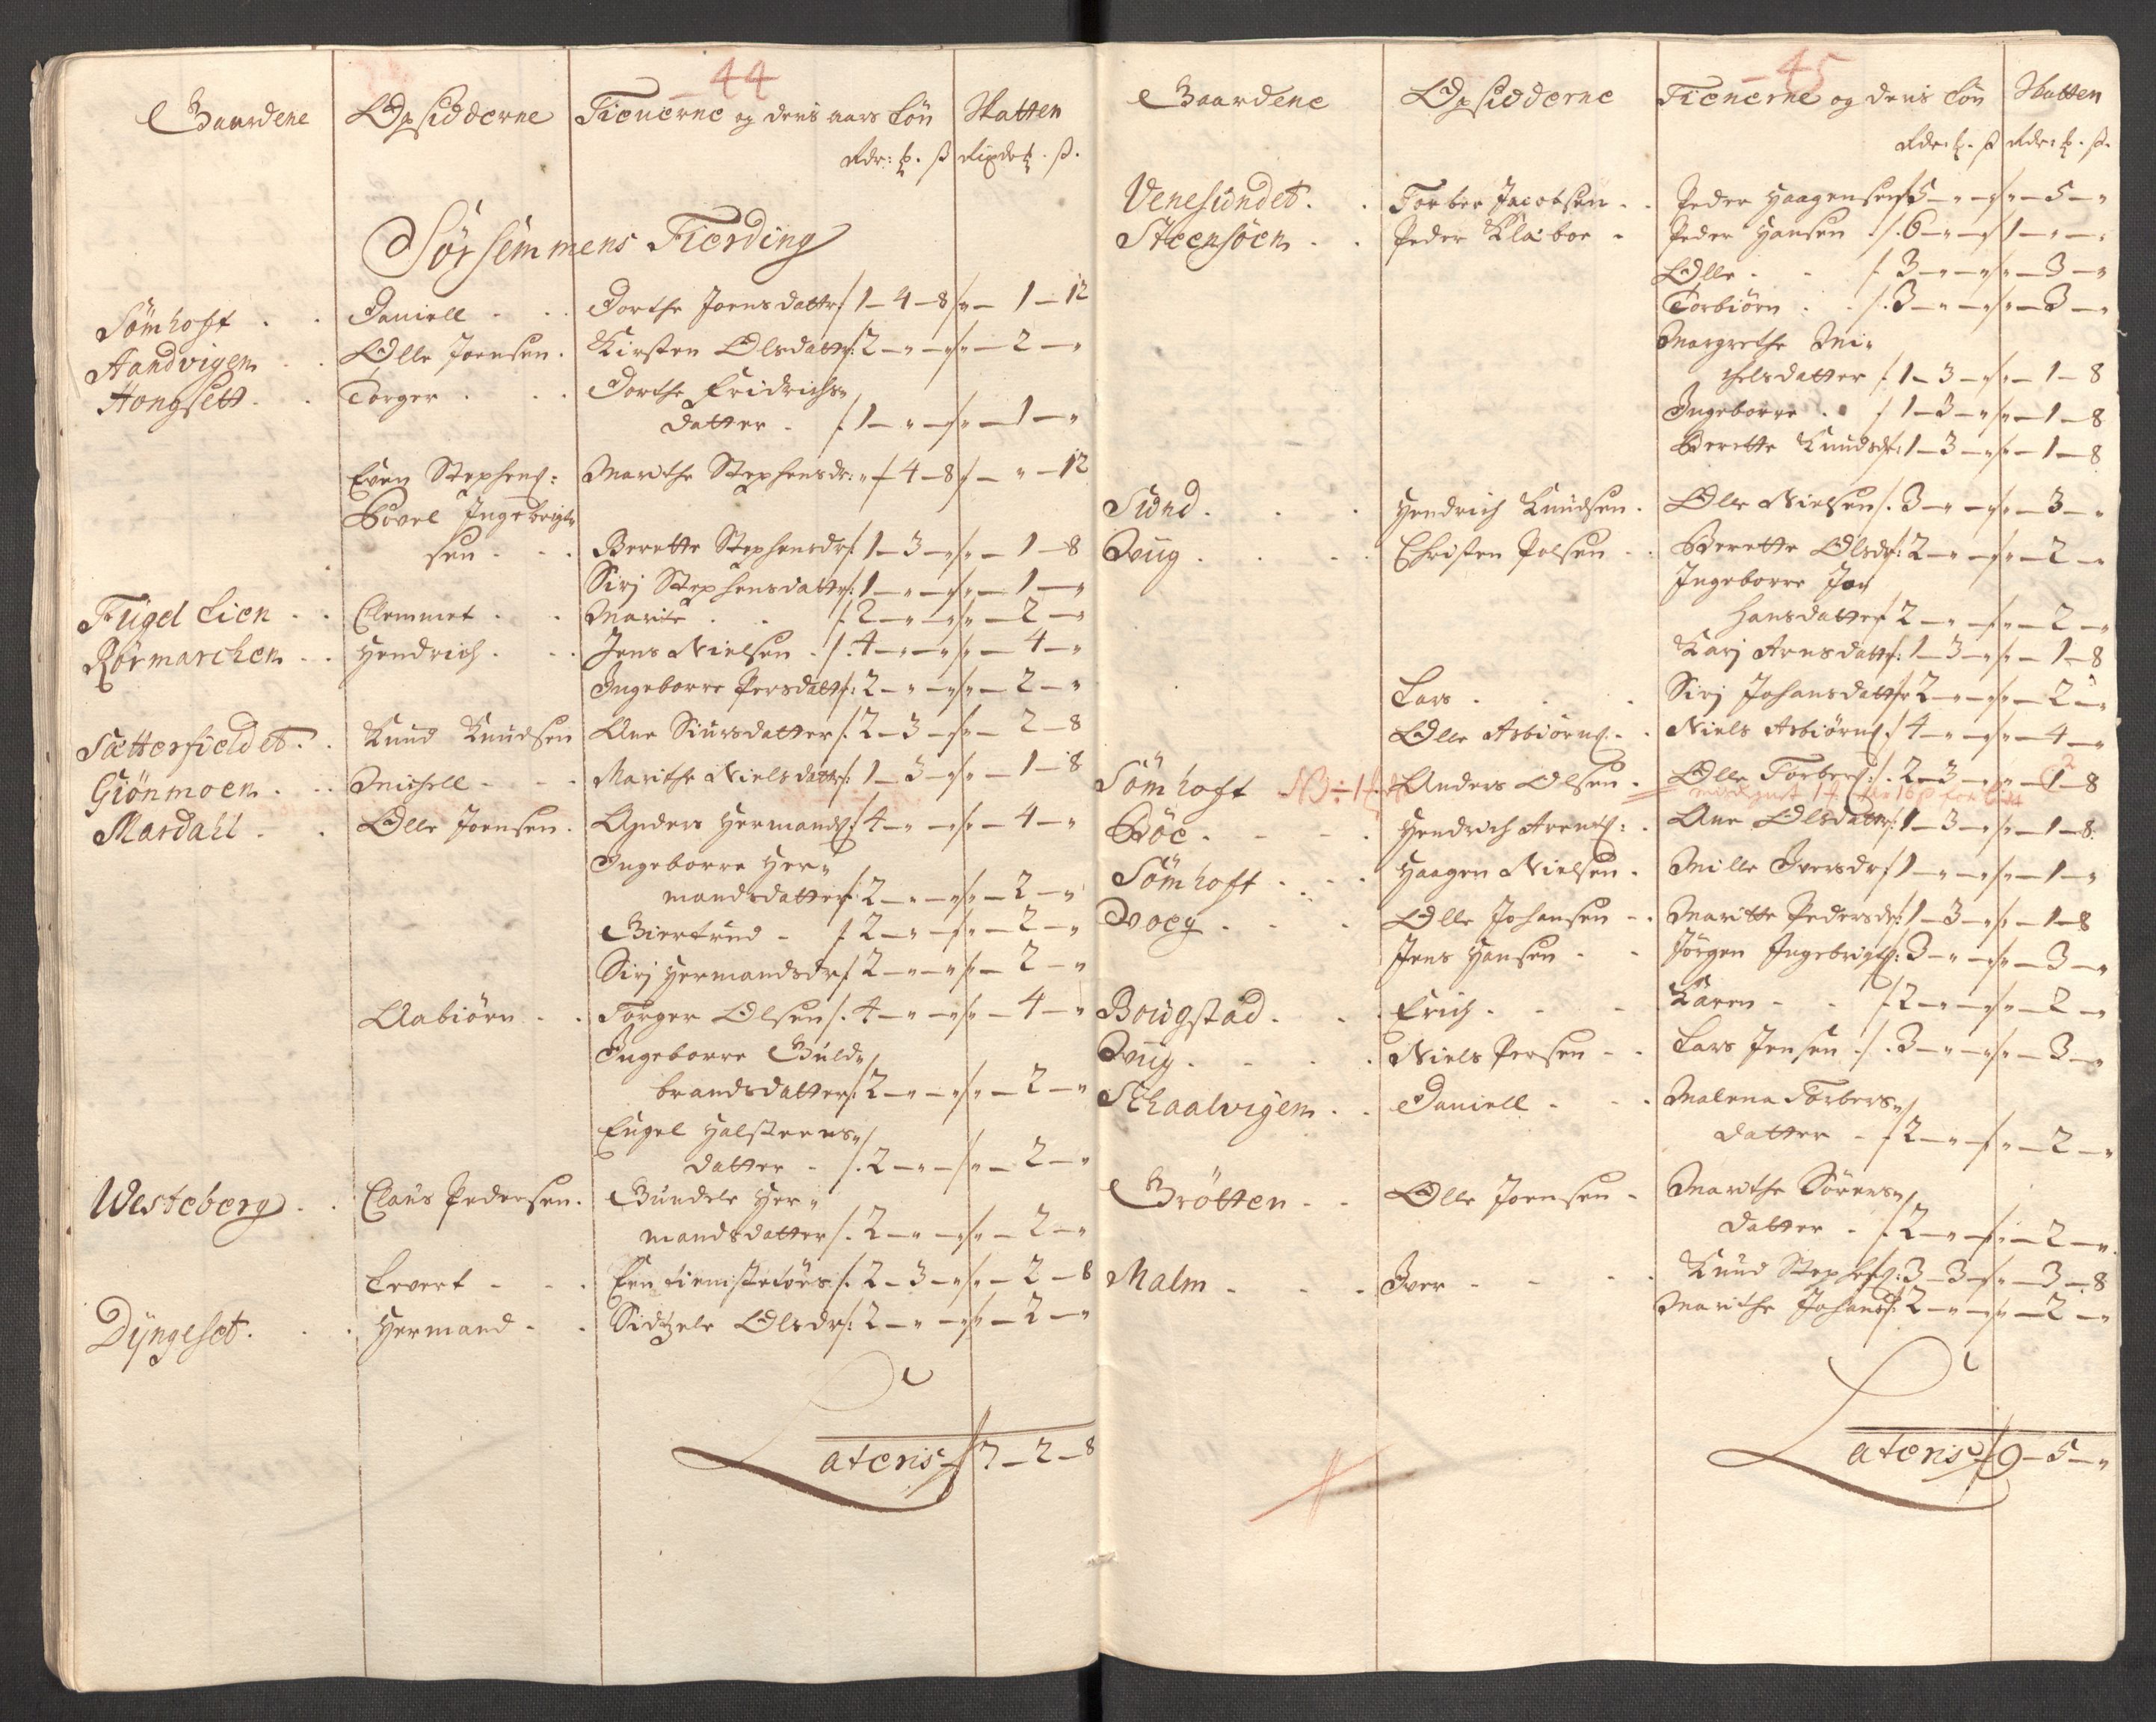 44
Gaardene Opsidderne Tienerne og deris aars Lön Skatten
Rdr: ß Rixdr ß.
Sörsemmens Fierding
Sömhofft . . Daniell . . Dorthe Joensdattr 1-4-8 „-1-12
Aandvigen . . Olle Joensen . Kirsten Olsdattr: 2-„-„ „-2-„
Hongsett . . Torger . . . Dorthe Fridrichs„
datter . 1-„-„ „-1-„
Even Stephens: Marithe Stephensdr: „-4-8 „-„-12
Povel Ingebrigt„
sen . . . Berette Stephensdr 1-3-„ „-1-8
Sirj Stephensdattr: 1-„-„ „-1-„
Fugellien . . Clemmet . . Marite . . 2-„-„ „-2-„
Rörmarchen . . Hendrich . . . Jens Nielsen . 4-„-„ „-4-„
Ingeborre Persdatt: 2-„-„ „-2-„
Sætterfieldet . . Knud Knudsen Ane Siursdatter 2-3-„ „-2-8
Giönmoen . . . Michell . . . Marithe Nielsdattr: 1-3-„ „-1-8
Mardahl . . Olle Joensen . Anders Hermands 4-„-„ „-4-„
Ingeborre Her„
mandsdatter 2-„-„ „-2-„
Giertrud - 2-„-„ „-2-„
Sirj Hermandsdr 2-„-„ „-2-„
Aabiörn . . Torger Olsen . 4-„-„ „-4-„
Ingeborre Guld„
brandsdatter 2-„-„ „-2-„
Engel Halsteens„
datter - 2-„-„ „-2-„
Westeberg . . Claus Pedersen . Gundele Her„
mandsdatter 2-„-„ „-2-„
Levert - . . Een tienistetöes 2-3-„ „-2-8
Dyngeset . . . Hermand - . Sidzele Olsdr: 2-„-„ „-2-„
Lateris 7-2-8
45
Gaardene Opsidderne Tienerne og deris Lön Skatten
Rdr: ß Rdr: ß.
Venesundet . . Torber Jacobsen . . Peder Haagensen 5-„-„ „-5-„
Steensöen . . Peder Klæboe - Peder Hansen . 6-„-„ 1-„-„
Olle . - 3-„-„ „-3-„
Torbiörn . . 3-„-„ „-3-„
Margrethe Mi„
chelsdatter 1-3-„ „-1-8
Ingeborre . . 1-3-„ „-1-8
Berette Knudsdr: 1-3-„ „-1-8
Sund . . . Hendrich Knudsen . Olle Nielsen . 3-„-„ „-3-„
Vüg . . . . Christen Polsen . . Berette Olsdr: 2-„-„ „-2-„
Ingeborre Jo„
hansdatter 2-„-„ „-2-„
Karj Arnsdattr: 1-3-„ „-1-8
Lars . . . Sirj Johansdattr 2-„-„ „-2-„
Olle Asbiörns . . Niels Asbiörns 4-„-„ „-4-„
Sömhofft NB÷1 Anders Olsen . Olle Torbers: 2-3-„ „-1-8
2
Böe . - - . Hendrich Arents: . Ane Olsdattr: 1-3-„ „-1-8.
Sömhofft . . . Haagen Nielsen . Mille Iversdr 1-„-„ „-1-„
Voeg . . . Olle Johansen . . Maritte Pedersdr: 1-3-„ „-1-8
Jens Hansen - - Jörgen Ingebrigts: 3-„-„ „-3-„
Bougstad . . . Erich . - - Karen - - 2-„-„ „-2-„
Vüg . - . . Niels Persen - . Lars Jensen . 3-„-„ „-3-„
Schaalvigen . . Daniell . - . Malena Torbers„
datter - 2-„-„ „-2-„
Brötten - - Olle Joensen - Marithe Sörens„
datter - 2-„-„ „-2-„
Malm - - - Iver - - . . Knud Stephens: 3-3-„ „-3-8
Marithe Johansd: 2-„-„ „-2-„
Lateris 9-5-„